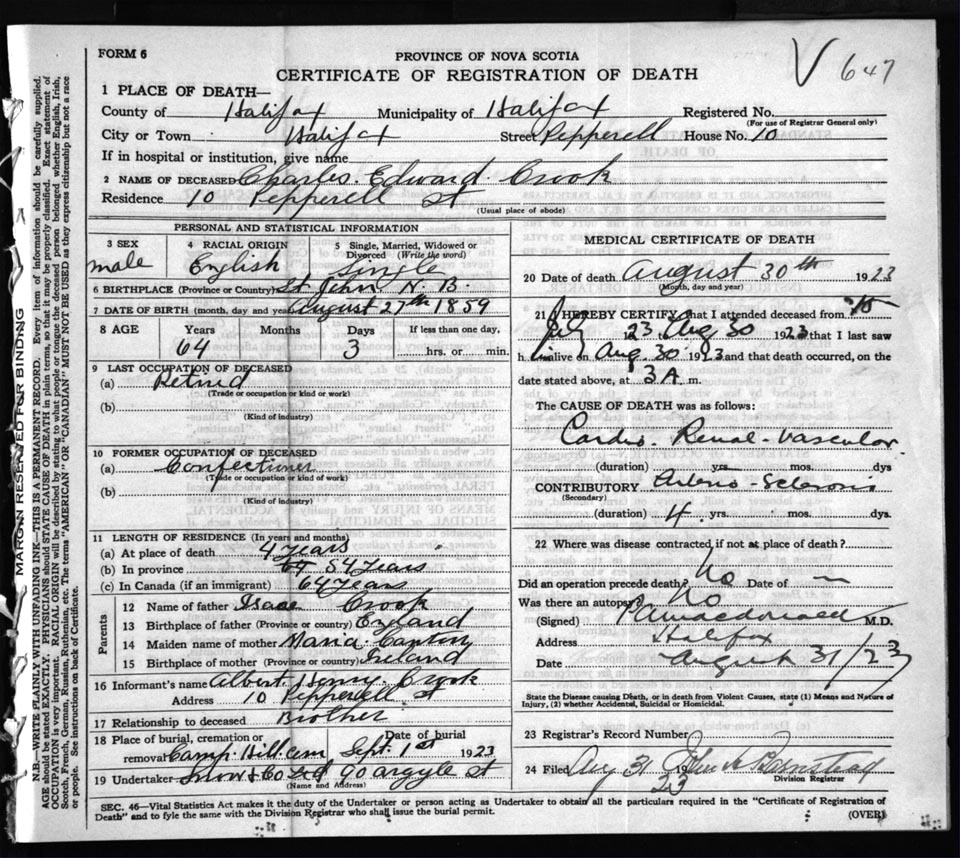 FORM 6
PROVINCE OF NOVA SCOTIA
CERTIFICATE OF REGISTRATION OF DEATH
V 647
1 PLACE OF DEATH—
County of Halifax Municipality of Halifax Registered No.
(For use of Registrar General only)
City or Town Halifax Street Pepperell House No. 10
If in hospital or institution, give name
2 NAME OF DECEASED Charles Edward Crook
Residence 10 Pepperell St
(Usual place of abode)
PERSONAL AND STATISTICAL INFORMATION
3 SEX 4 RACIAL ORIGIN 5 Single, Married, Widowed or Divorced (Write the word)
male English Single
6 BIRTHPLACE (Province or Country) St John N. B.
7 DATE OF BIRTH (month, day and year) August 27th 1859
8 AGE Years Months Days If less than one day,
64 3 hrs. or min.
9 LAST OCCUPATION OF DECEASED
(a) Retired
(Trade or occupation or kind or work)
(b)
(Kind of industry)
10 FORMER OCCUPATION OF DECEASED
(a) Confectioner
(Trade or occupation or kind or work)
(b)
(Kind of industry)
11 LENGTH OF RESIDENCE (In years and months)
(a) At place of death 4 years
(b) In province 54 years
(c) In Canada (if an immigrant) 64 years
Parents
12 Name of father Isaac Crook
13 Birthplace of father (Province or country) England
14 Maiden name of mother Maria
15 Birthplace of mother (Province or country) Ireland
16 Informant's name Albert Henry Crook
Address 10 Pepperell st
17 Relationship to deceased Brother
18 Place of burial, cremation or removal Date of burial
Camp Hill cem Sept. 1st 1923
19 Undertaker Snow & Co Ltd 90 argyle st
(Name and Address)
MEDICAL CERTIFICATE OF DEATH
20 Date of death August 30th 1923
(Month, day and year)
21 I HEREBY CERTIFY that I attended deceased from
July 23 to Aug 30 1923 that I last saw
h im alive on Aug 30 1923 and that death occurred, on the
date stated above, at 3 A. m.
The CAUSE OF DEATH was as follows:
Cardio-Renal-Vascular
(duration) yrs. mos. dys
CONTRIBUTORY Arterio-Sclerosis
(Secondary)
(duration) 4 yrs. mos. dys.
22 Where was disease contracted, if not at place of death?
Did an operation precede death? No Date of —
Was there an autopsy? No
(Signed) Macdonald M.D.
Address Halifax
Date August 31/23
State the Disease causing Death, or in death from Violent Causes, state (1) Means and Nature of
Injury, (2) whether Accidental, Suicidal or Homicidal.
23 Registrar's Record Number
24 Filed Aug 31 1923 Barnstead
Division Registrar
SEC. 46—Vital Statistics Act makes it the duty of the Undertaker or person acting as Undertaker to obtain all the particulars required in the "Certificate of Registration of
Death" and to fyle the same with the Division Registrar who shall issue the burial permit.
(OVER)
MARGIN RESERVED FOR BINDING
N.B.—WRITE PLAINLY WITH UNFADING INK—THIS IS A PERMANENT RECORD. Every item of information should be carefully supplied.
AGE should be stated EXACTLY. PHYSICIANS should STATE CAUSE OF DEATH in plain terms, so that it may be properly classified. Exact statement of
OCCUPATION is very important. RACIAL ORIGIN will be described by stating to what people or tongue the deceased person belonged whether English, Irish,
Scotch, French, German, Russian, Ruthenian, etc. The terms "AMERICAN" OR "CANADIAN" MUST NOT BE USED as they express citizenship but not a race
or people. See instructions on back of Certificate.